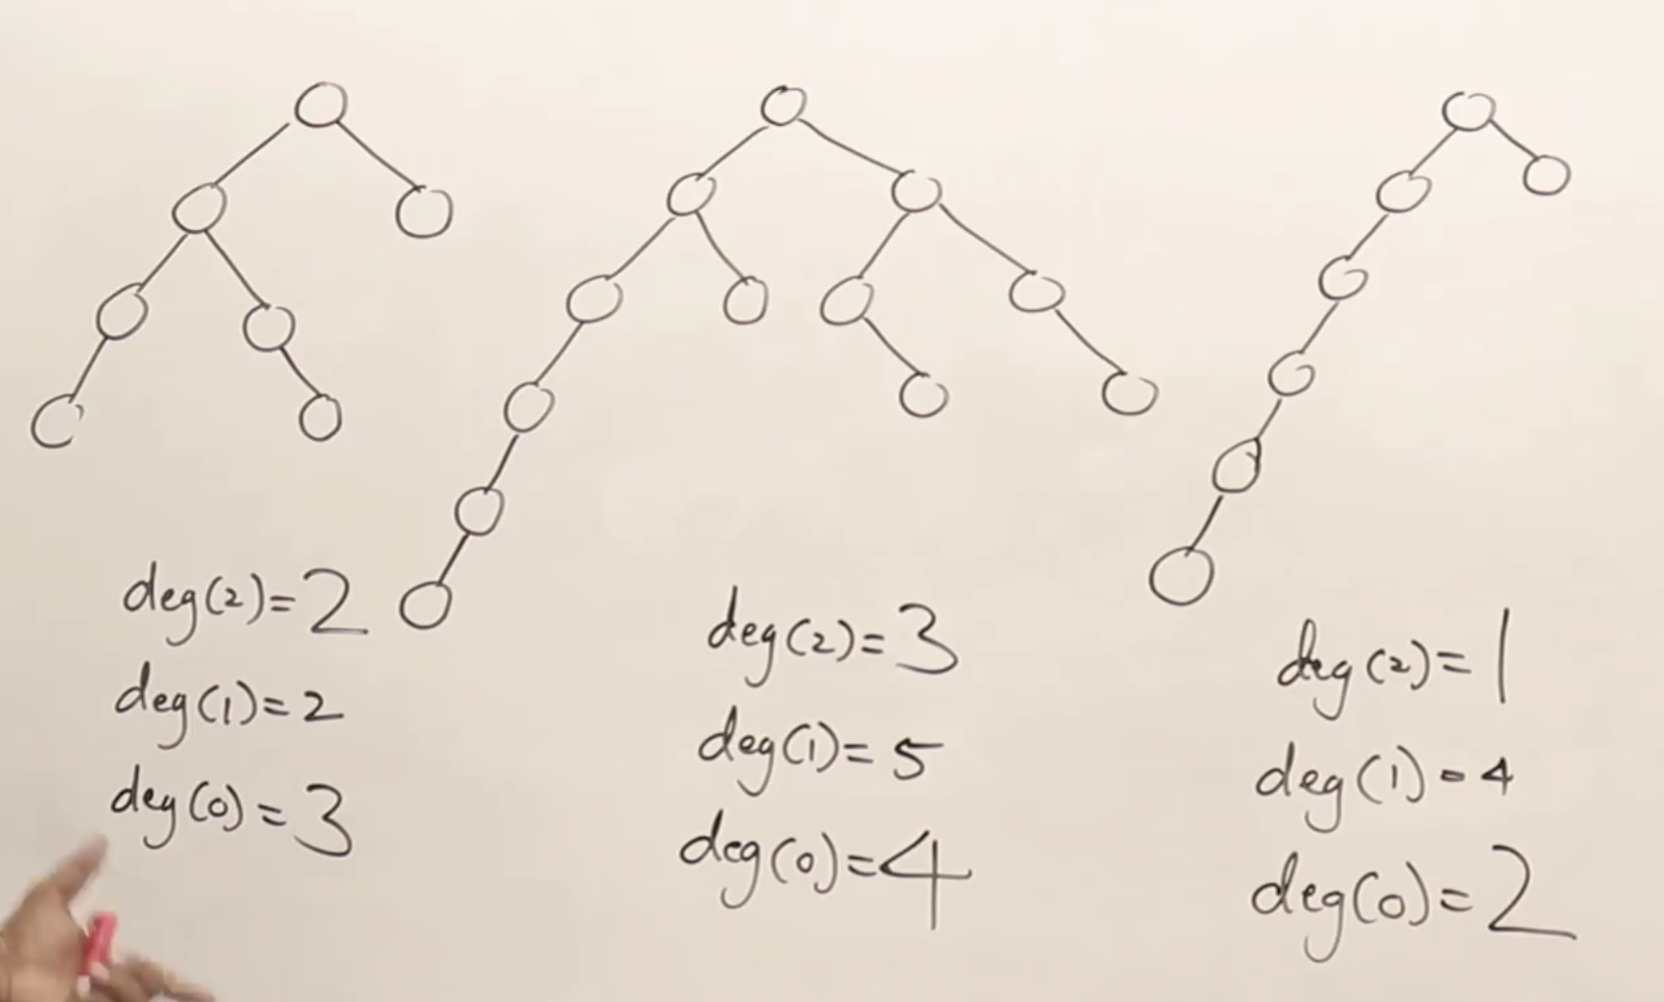 deg(2)=2
deg(1)=2
deg(0)=3
deg(2)=3
deg(1)=5
deg(0)=4
deg(2)=1
deg(1)=4
deg(0)=2